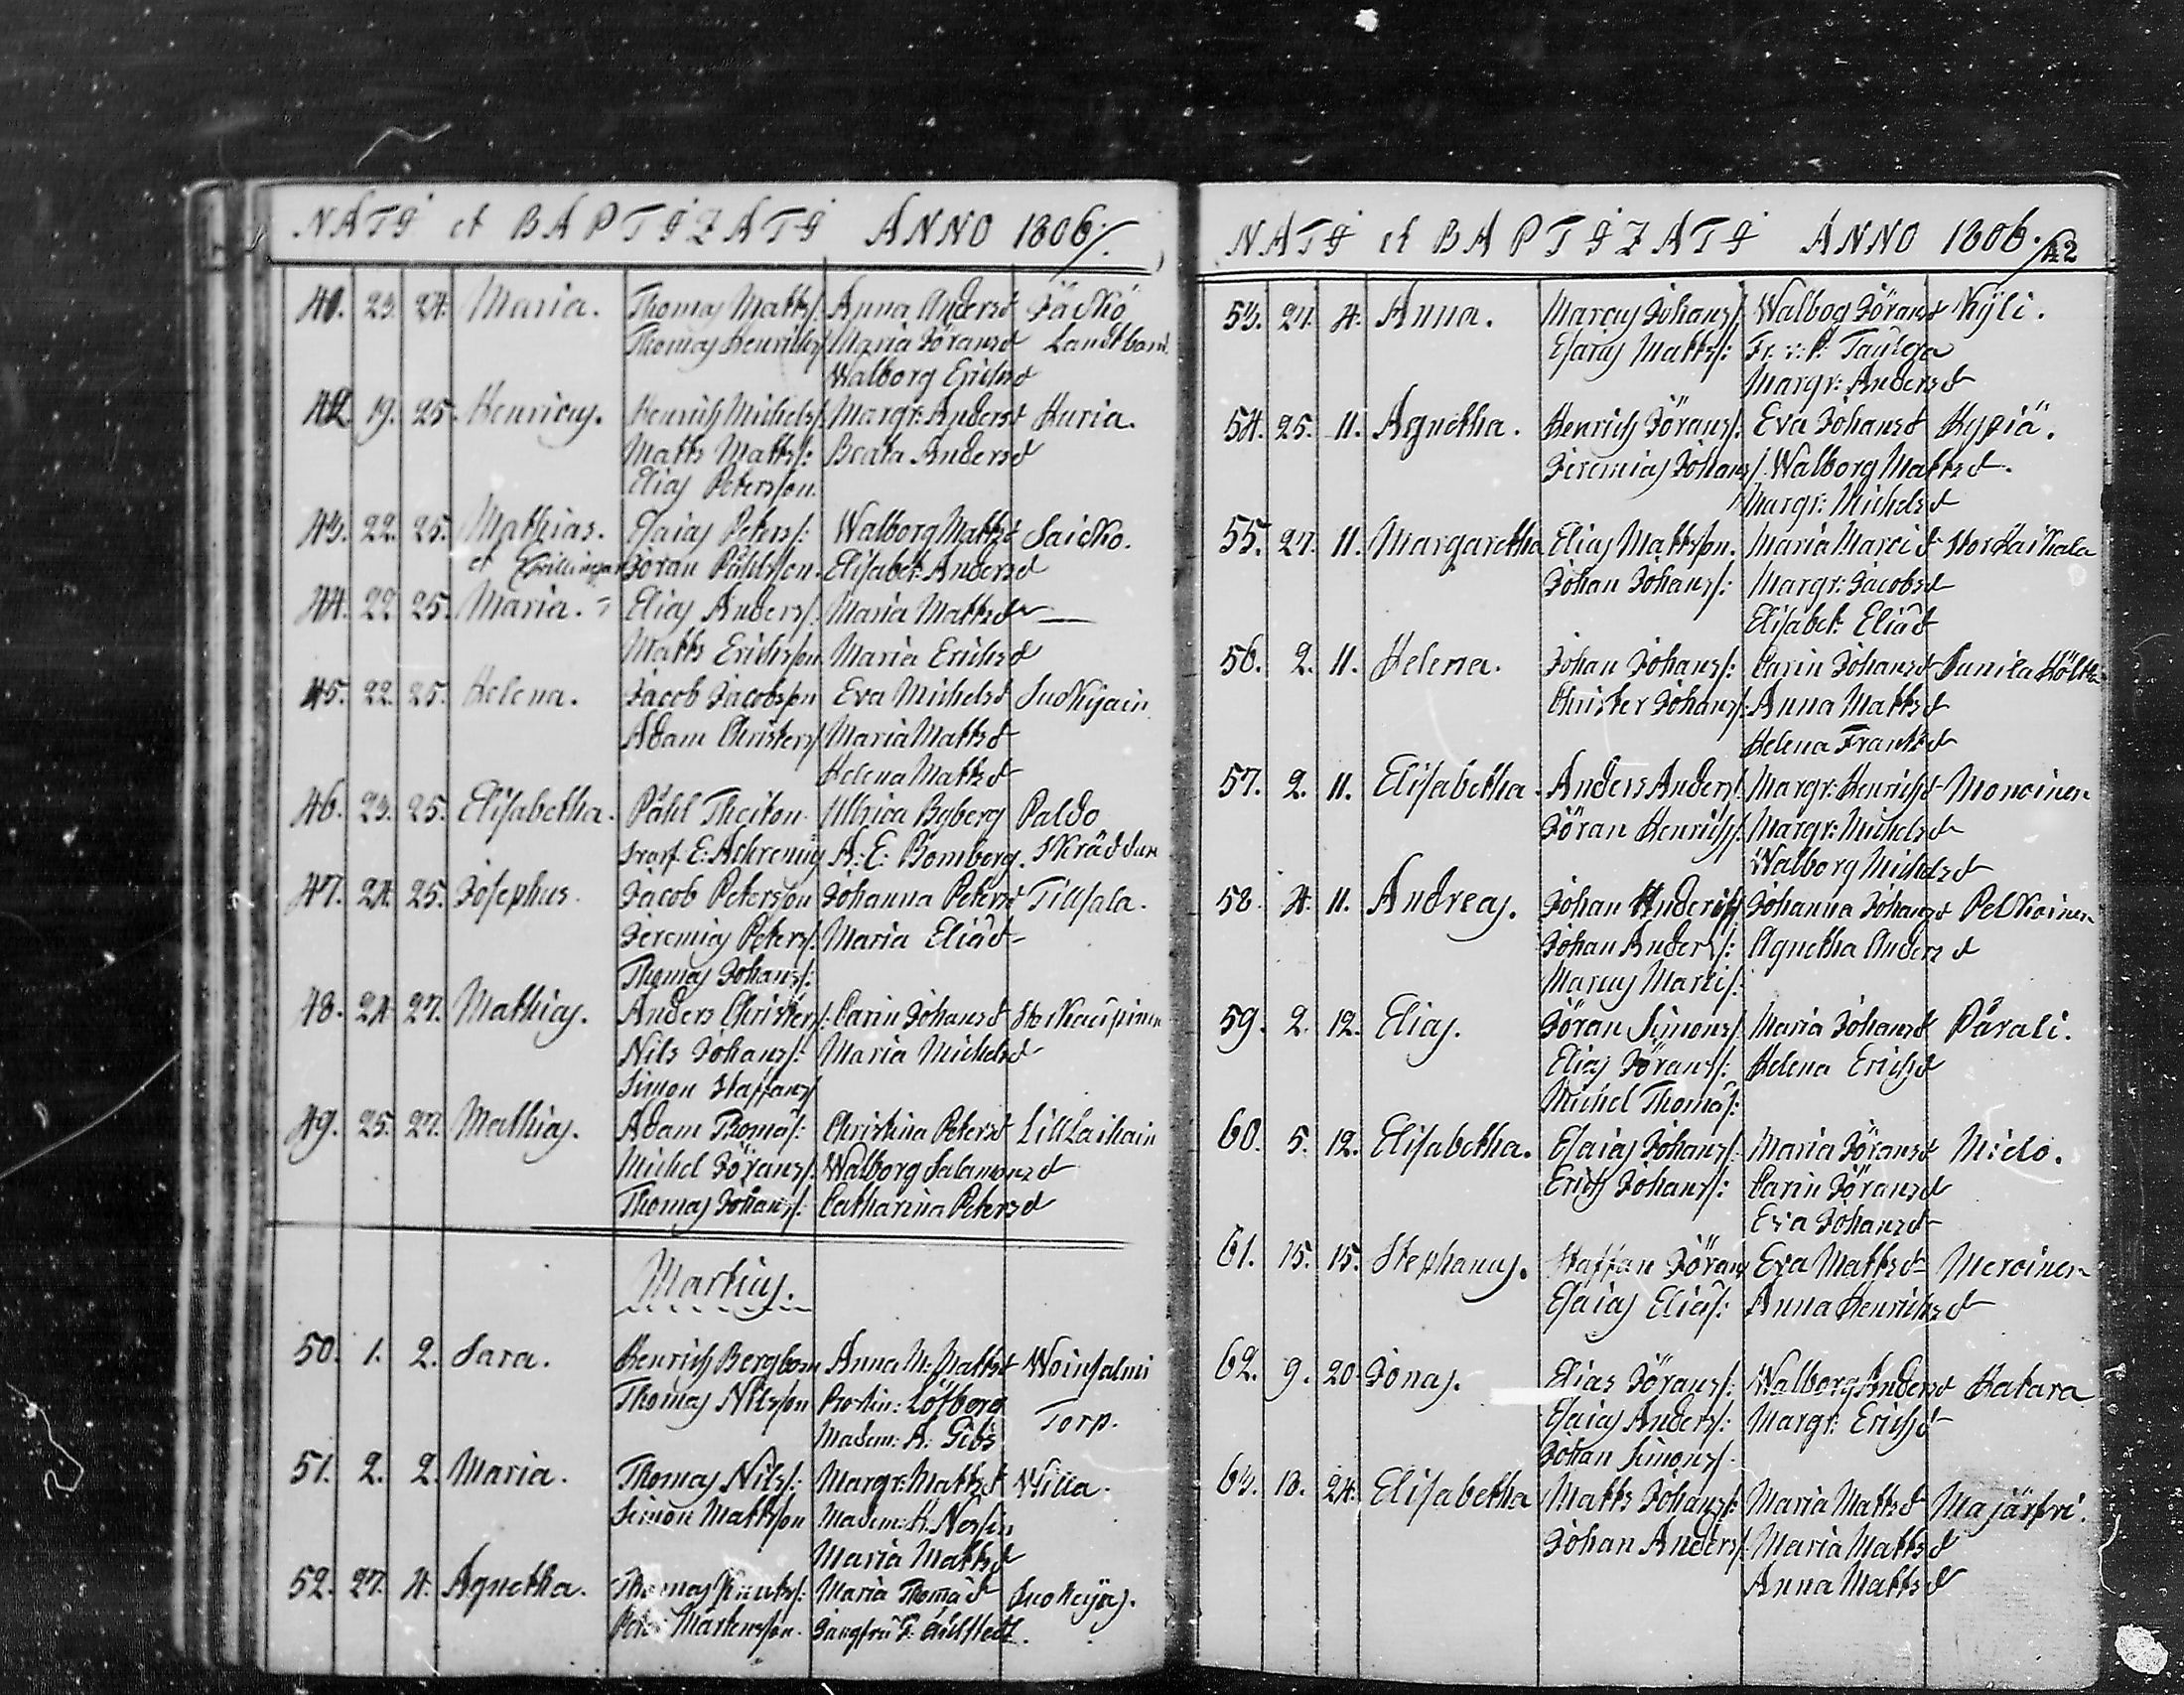 NATI et BAPTIZATI ANNO 1806.
41. 23. 24. Maria. Thomas Matts/: Anna Andersd Jäckö
Thomas Henrichs/ Maria Jöransd Landtbond.
Walborg Erichsd
42 19. 25. Henricus. Henrich Michels/: Margr: Andersd Huria.
Matts Matts/: Beata Andersd
Elias Petersson.
43. 22. 25. Mathias. Esaias Peters/: Walborg Mattsd Saicko.
et Tvillingar Jöran Påhlsson. Elisabet: Andersd
44. 22 25. Maria. Elias Anders/: Maria Mattsd —
Matts Erichsson Maria Erichsd
45. 22. 25. Helena. Jacob Jacobsson Eva Michelsd Suokyjain
Adam Christers/ Maria Mattsd
Helena Mattsd
46. 23. 25. Elisabetha. Påhl Theiton Ullrica Byberg Paldo
E: Achrenius A: E: Bomberg. Skräddare
47. 24. 25. Josephus. Jacob Petersson Johanna Petersd Tillsala.
Jeremias Peters/: Maria Eliæd
Thomas Johans/:
48. 24 27. Mathias. Anders Christers/: Carin Johansd Storkaupinen
Nils Johans/: Maria Michelsd
Simon Staffans/
49. 25. 27. Mathias. Adam Thomæ/: Christina Petersd Lill Laihain
Michel Jörans/: Walborg Salamonsd
Thomas Johans/: Catharina Petersd
Martius.
50. 1. 2. Sara. Henrich Bergbom Anna M: Mattsd Woinsalmi
Thomas Nilsson Prostin: Löfberg Torp.
Madem: A: Gibs
51. 2. 2. Maria. Thomas Nils/: Margr: Mattsd Willa.
Simon Mattsson Madem: H. Nersin
Maria Mattsd
52. 27. 4. Agnetha. Thomas Knuts/: Maria Thomæd Suokyjs.
Petter Mårtensson. Jungfru F:
NATI et BAPTIZATI ANNO 1806. 42
53. 27. 4. Anna. Marcus Johans/: Walbog Jöransd Kyli.
Esaias Matts/: Fr. v: P. Taulera
Margr: Andersd
54. 25. 11. Agnetha. Henrich Jörans/: Eva Johansd Hypiä.
Jeremias Johans/. Walborg Mattsd.
Margr: Michelsd
55. 27. 11. Margaretha Elias Mattsson. Maria Marcid Stor Laihala
Johan Johans/: Margr: Jacobsd
Elisabet: Eliæd
56. 2. 11. Helena. Johan Johans/: Carin Johansd Junila Hölkk
Christer Johans/: Anna Mattsd
Helena Frantsd
57. 2. 11. Elisabetha. Anders Anders/. Margr: Henrichsd Monoinen
Jöran Henrichs/: Margr: Michelsd
Walborg Michelsd
58. 4. 11. Andreas. Johan Anders/ Johanna Johansd Pelkoinen
Johan Anders/: Agnetha Andersd
Marcus Marci/:
59. 2. 12. Elias. Jöran Simons/: Maria Johansd Pårali.
Elias Jörans/: Helena Erichsd
Michel Thomæ/:
60. 5. 12. Elisabetha. Esaias Johans/: Maria Jöransd Mielo.
Erich Johans/: Carin Jöransd
Eva Johansd
61. 15. 15. Stephanus. Staffan Jörans Eva Mattsd Meroinen
Esaias Eliæ/: Anna Henrichsd
62. 9. 20 Jonas. Elias Jörans/: Walborg Andersd Katara
Esaias Anders/: Margr: Erichsd
Johan Simons/.
63. 18. 24. Elisabetha Matts Johans/: Maria Mattsd Majärfvi.
Johan Anders/: Maria Mattsd
Anna Mattsd